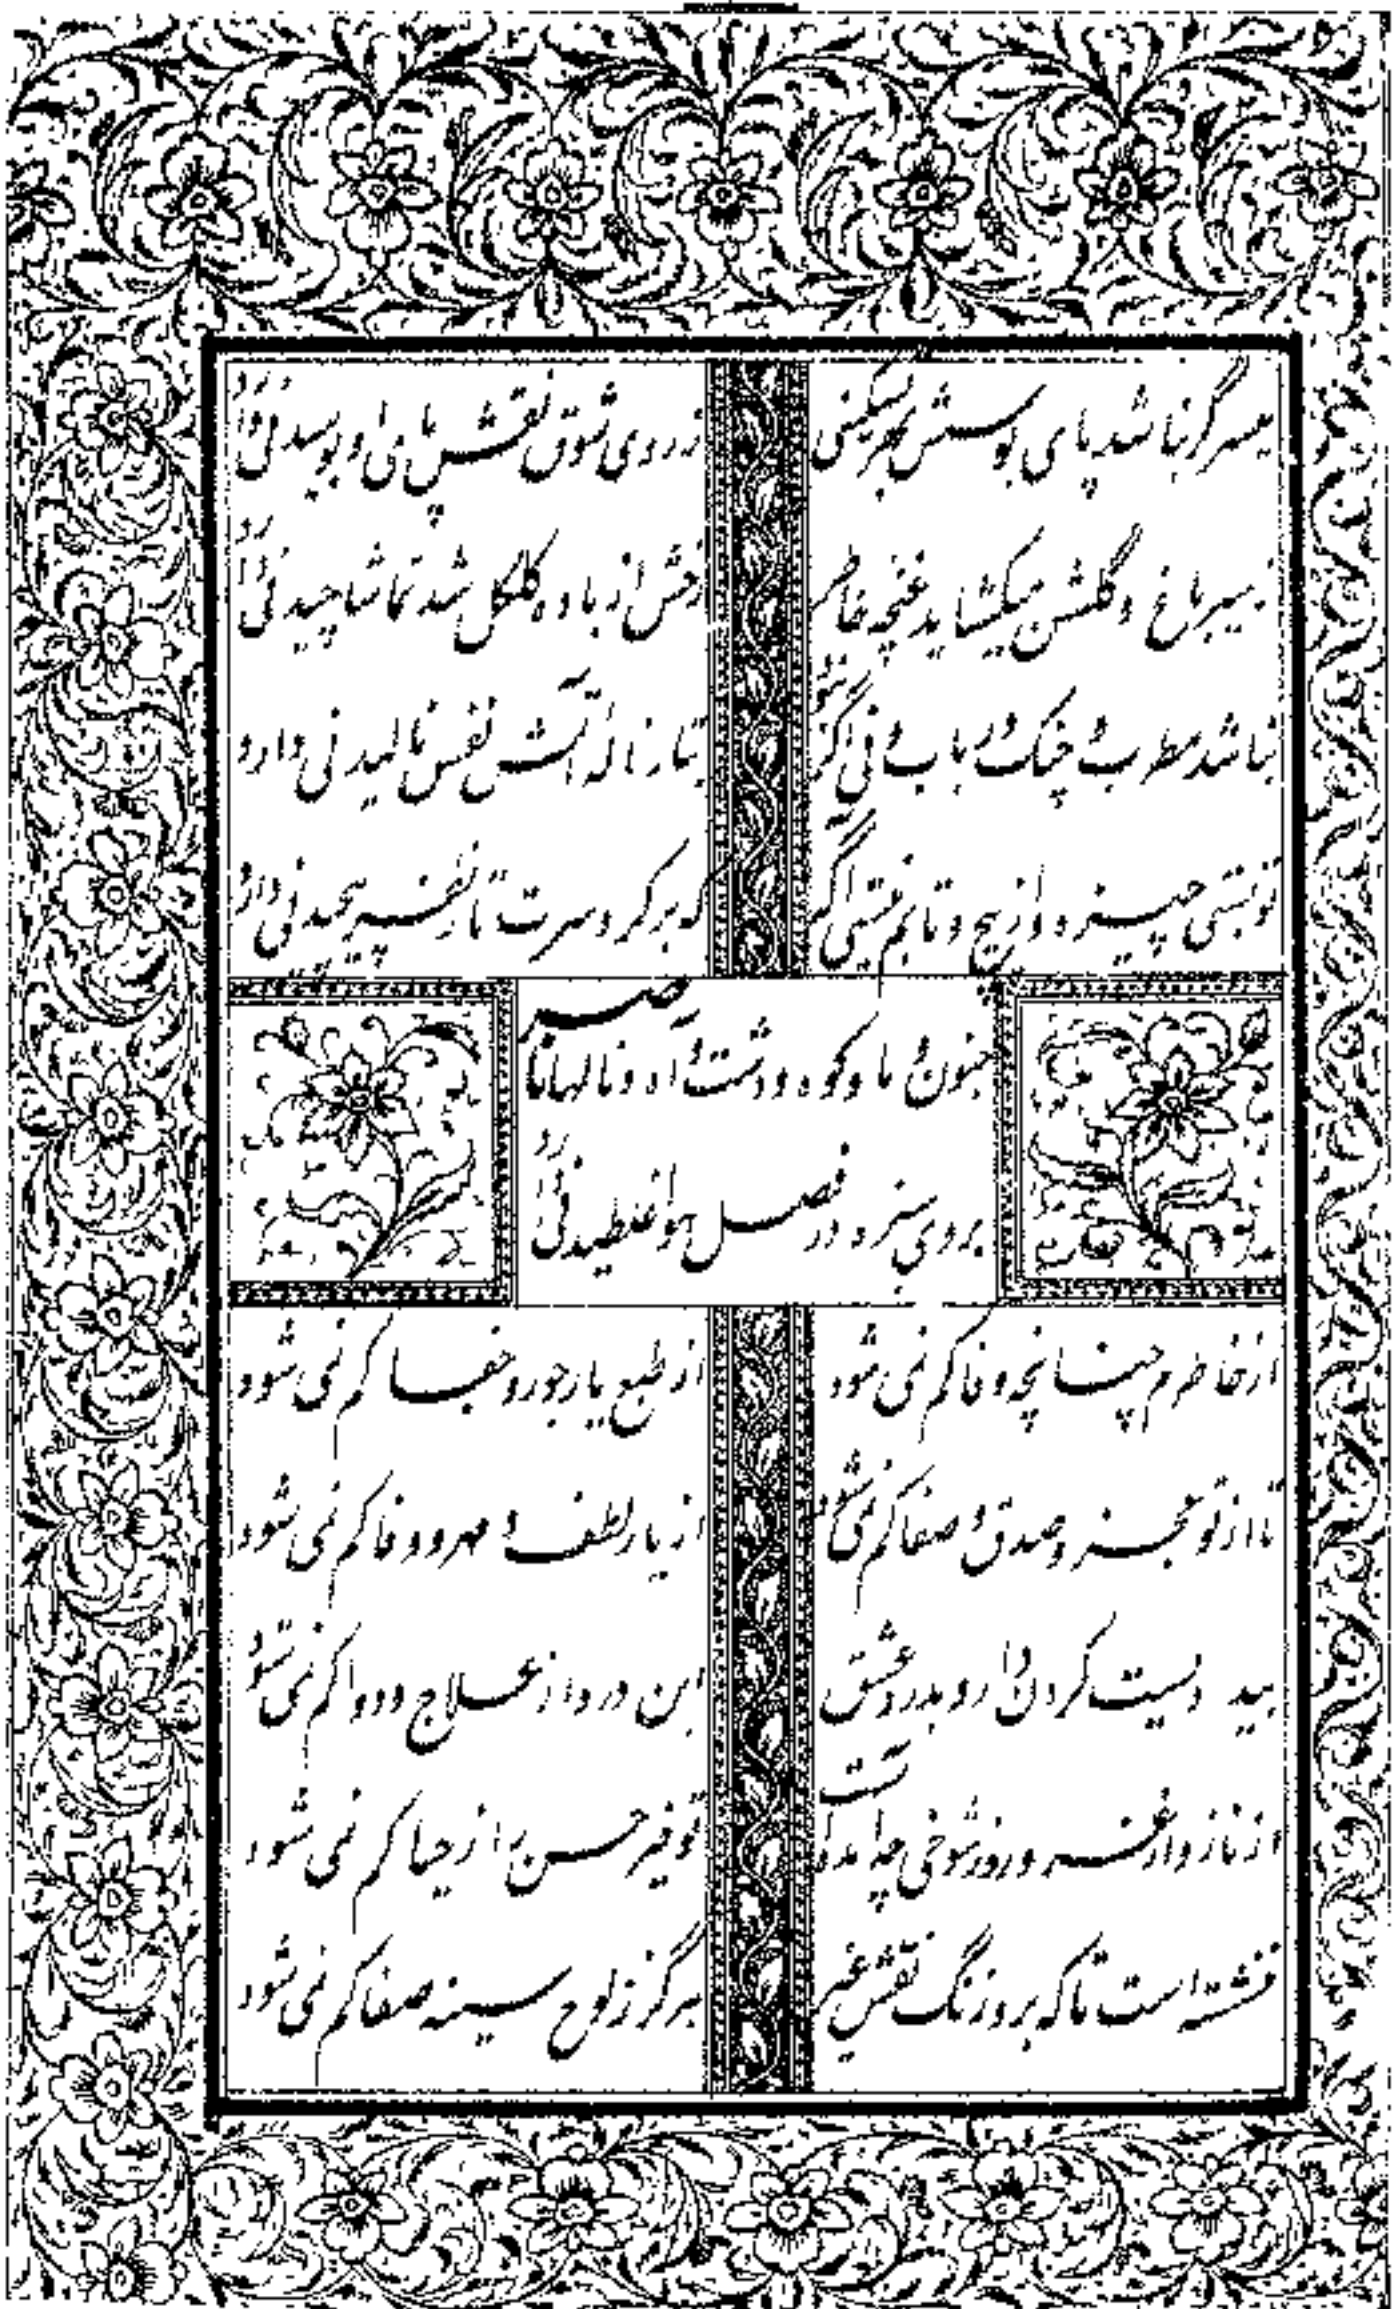 میسر گر نباشد پای بوسش بهر تسکینی
ز روی شوق نقش پای او بوسیدنی دارد
ز سیر باغ و گلشن میکشاید غنچه خاطر
رخش از باده گلگل شد تماشا چیدنی دارد
نباشد مطرب و چنگ و رباب و نی اگر
بتار ناله آتش نفس نالیدنی دارد
تو بستی چیز و از پیچ و تابم نیستی آگه
که بر گرد سرت تار پیچیدنی دارد
جنون ما و کوه و دشت و آه و نالها
بروی سبزه در فصل هوا غلطیدنی دارد
از خاطرم چنانچه وفا کم نمی شود
از طبع یار جور و جفا کم نمی شود
تا از تو عجز و صدق و صفا کم نمی شود
از یار لطف و مهر و وفا کم نمی شود
بید نیست کردن رو بدرد عشق
این درد از علاج و دوا کم نمی شود
از ناز و از غمزه و روز شوخی
توفیر حسن از حیا کم نمی شود
است تا که بروز نگ نقش غیر
هرگز ز لوح سینه صفا کم نمی شود